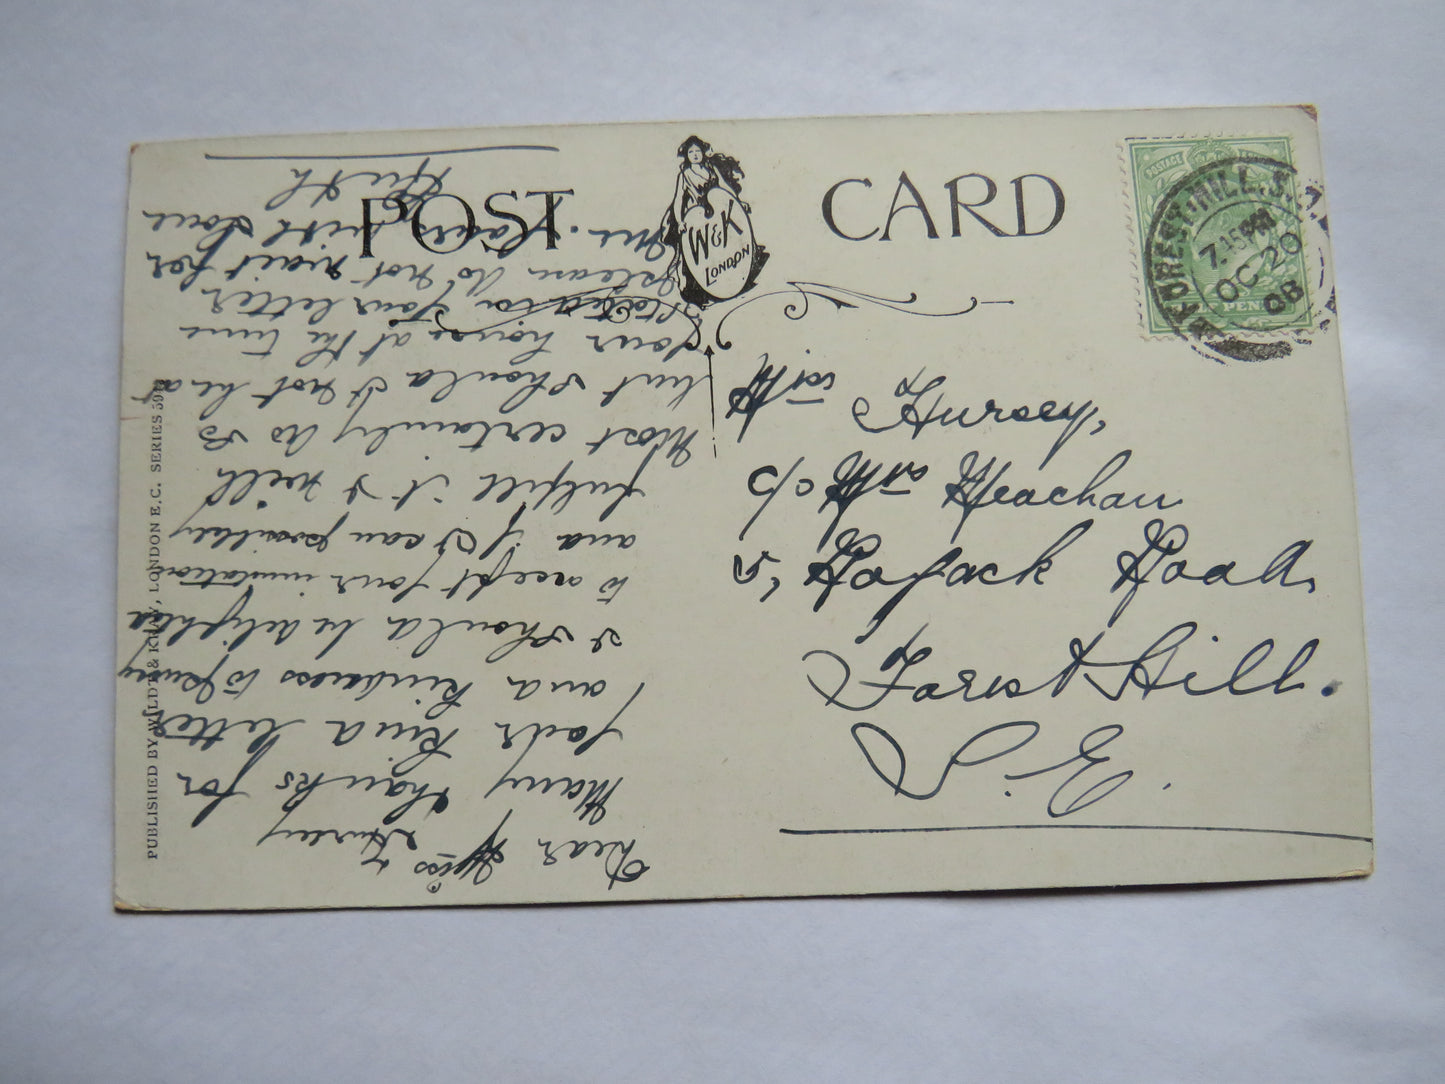 POST CARD
W&K
LONDON
FOREST-HILL. S.E.
7.15PM
OC 20
08
POSTAGE
PENNY
Miss Hursey,
c/o Mrs Meachan
5, Rojack Road,
Forest Hill.
S. E.
Dear Miss Hursey
Many thanks for
your kind letter
and kindness to Jimmy
I should be delighted
to accept your invitation
and if I can possibley
fulfill it I will
Most certainly do so
but should I not be at
your house at the time
Stated in your letter
please do not wait for
me. Yours with love
Ruth
PUBLISHED BY WILDT & KRAY, LONDON E.C. SERIES